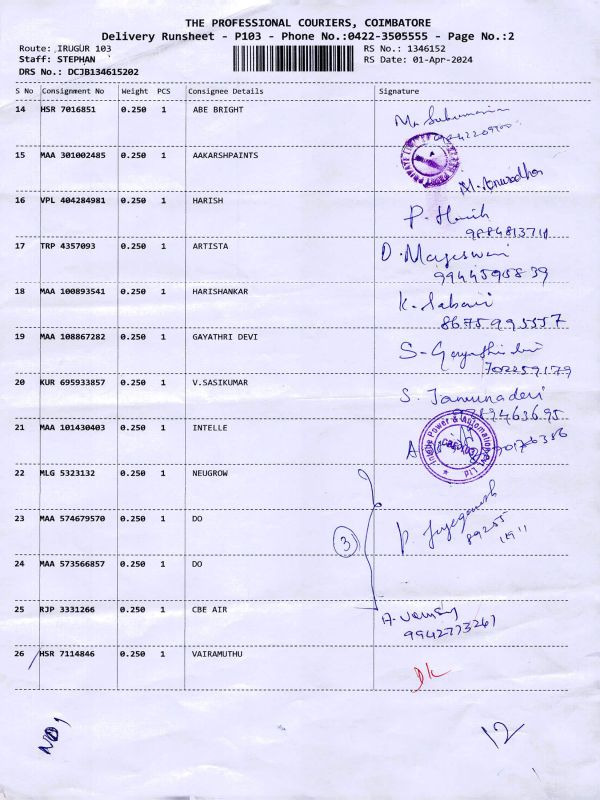 THE PROFESSIONAL COURIERS, COIMBATORE
Delivery Runsheet - P103 - Phone No.:0422-3505555 - Page No.:2
Route: IRUGUR 103 RS No.: 1346152
Staff: STEPHAN RS Date: 01-Apr-2024
DRS No.: DCJB134615202
S No Consignment No Weight PCS Consignee Details Signature
14 HSR 7016851 0.250 1 ABE BRIGHT
15 MAA 301002485 0.250 1 AAKARSHPAINTS
16 VPL 404284981 0.250 1 HARISH P. Harish
9884813711
17 TRP 4357093 0.250 1 ARTISTA D. Mageswari
9944595839
18 MAA 100893541 0.250 1 HARISHANKAR K. Sabari
8675995557
19 MAA 108867282 0.250 1 GAYATHRI DEVI S- Gayathri devi
702259179
20 KUR 695933857 0.250 1 V.SASIKUMAR S. Jamunadevi
21 MAA 101430403 0.250 1 INTELLE
Intelle Power & Automation
22 MLG 5323132 0.250 1 NEUGROW
23 MAA 574679570 0.250 1 DO
3
24 MAA 573566857 0.250 1 DO
25 RJP 3331266 0.250 1 CBE AIR
9942773261
26 HSR 7114846 0.250 1 VAIRAMUTHU
12